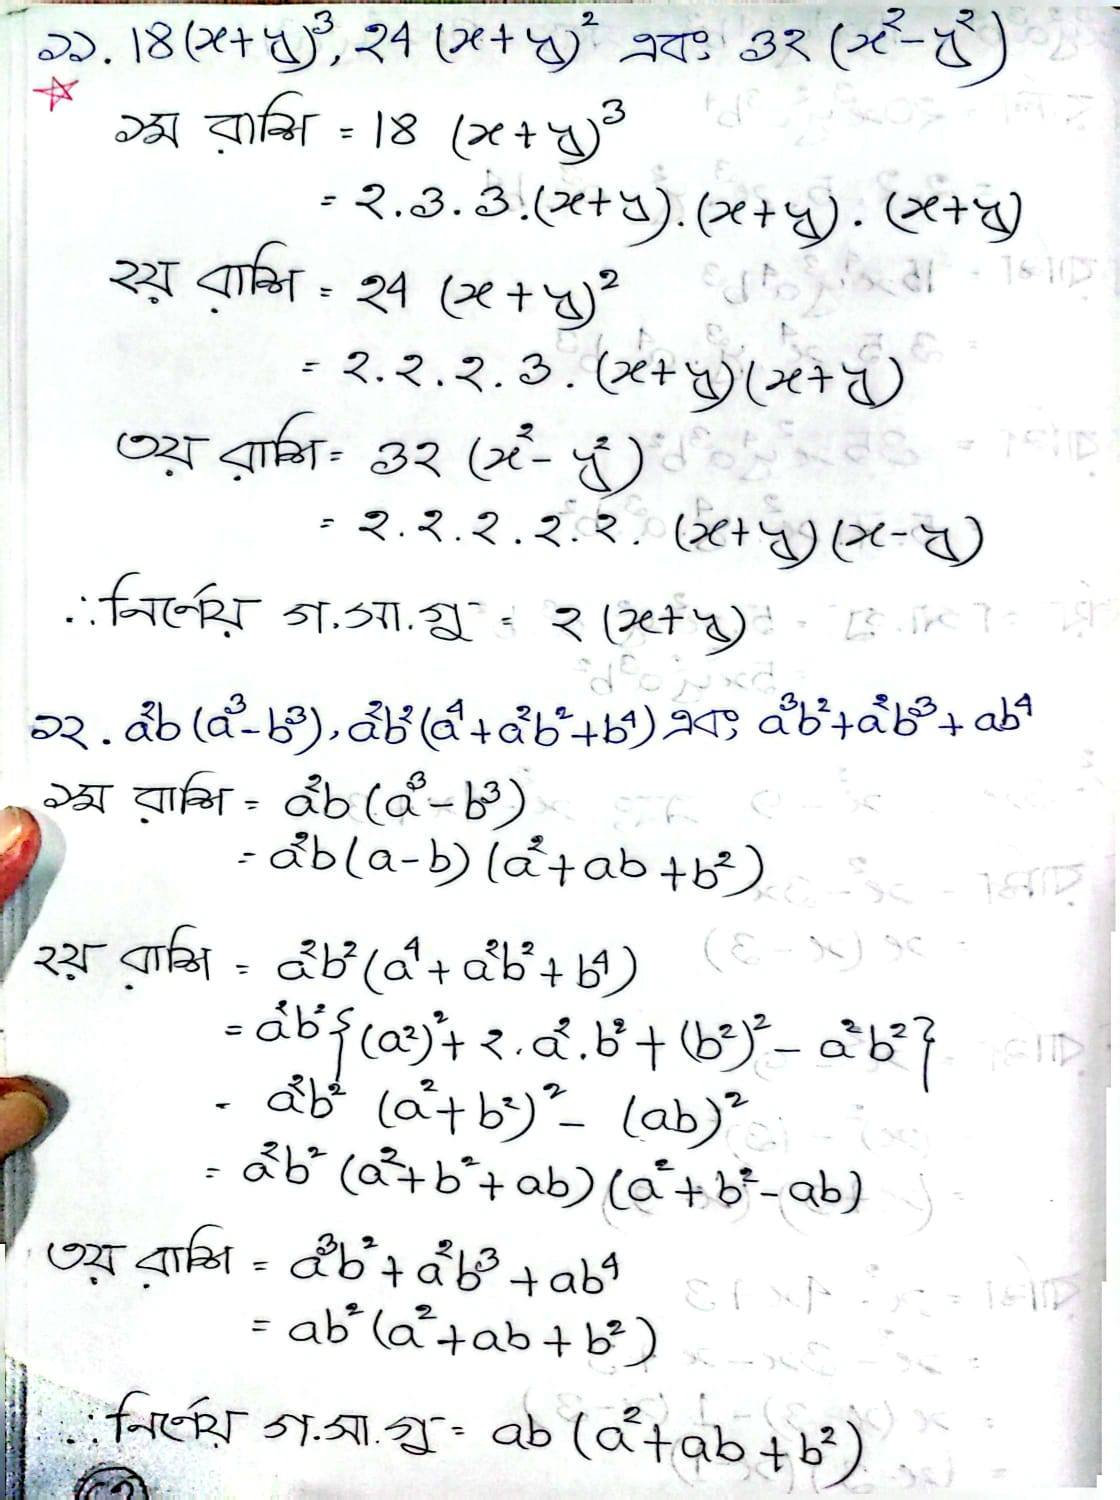 ১১. 18(x+y)³, 24 (x+y)² এবং 32 (x²-y²)
১ম রাশি = 18 (x+y)³
= 2.3.3.(x+y).(x+y).(x+y)
২য় রাশি = 24 (x+y)²
= 2.2.2.3.(x+y)(x+y)
৩য় রাশি = 32 (x²-y²)
= 2.2.2.2.2.(x+y)(x-y)
∴ নির্ণেয় গ.সা.গু = 2 (x+y)
১২. a²b(a³-b³), a²b²(a⁴+a²b²+b⁴) এবং a³b²+a²b³+ab⁴
১ম রাশি = a²b(a³-b³)
= a²b(a-b)(a²+ab+b²)
২য় রাশি = a²b²(a⁴+a²b²+b⁴)
= a²b²{(a²)²+2.a².b²+(b²)²-a²b²}
= a²b² (a²+b²)²-(ab)²
= a²b²(a²+b²+ab)(a²+b²-ab)
৩য় রাশি = a³b²+a²b³+ab⁴
= ab²(a²+ab+b²)
∴ নির্ণেয় গ.সা.গু = ab(a²+ab+b²)